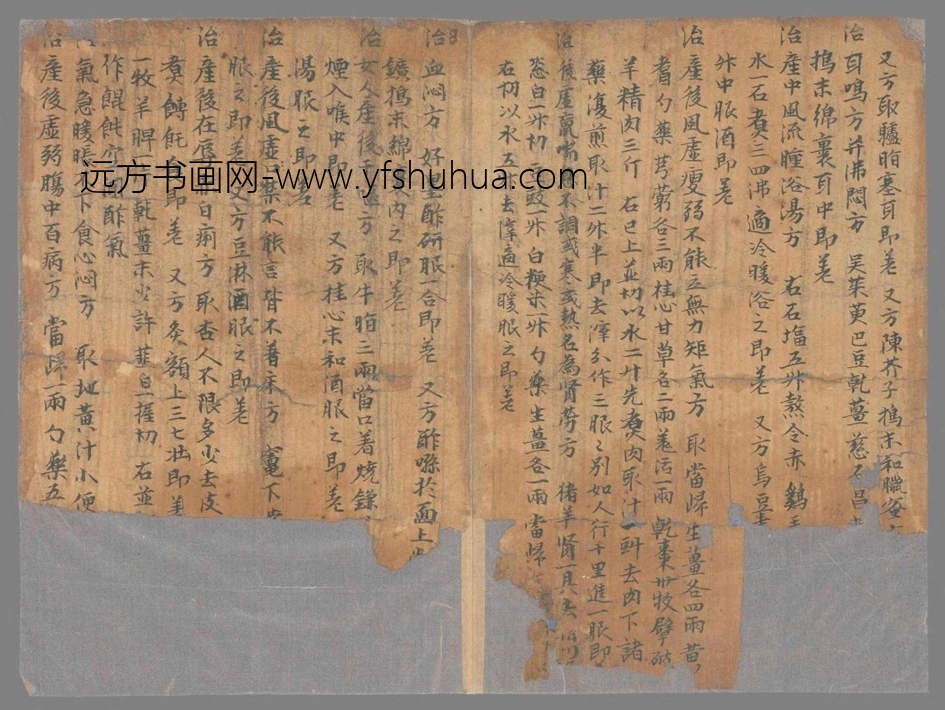 又方取驢脂塞耳即差 又方陳芥子搗末和臘蜜
治耳鳴方并沸悶方 吴茱萸巴豆乹薑慈石昌
搗末綿裹耳中即差
治産中風流瞳浴湯方 右石塩五升熬令赤 鷄
水一石煮三四沸適冷暖浴之即差 又方烏豆
升中服酒即差
治産後風虛瘦弱不能立無力矩氣方 取當歸生薑各四兩黄
耆勺藥芎藭各三兩桂心甘草各二兩羌活一兩 乹棗卅枚擘破
羊精肉三斤 右已上並切以水二斗先煑肉取汁一㪷去肉下諸
藥復煎取汁二升半即去滓分作三服々别如人行十里進一服即
治後虛羸喘 不調或寒或熱名為腎勞方 猪羊腎一具去
葱白一升切 豉一升 白粳米一升 勺藥生薑各一兩 當歸
右切以水五 去滓適冷暖服之即差
8
治血沟方 好墨酢研服一合即差 又方酢噀於面上
鑛搗末綿 內之即差
治女人産後 方 取牛脂三兩當口着燒鎌
煙入喉中即差 又方桂心末和酒服之即差
湯服之即差
治産後風虛 不能言皆不著床方 竈下
服之即差又方豆淋酒服之即差
治産後在辱 白痢方 取杏人不限多少去皮
煑餺飥食即差 又方灸額上三七壮即差
一枚羊脾 乹薑末少許 韮白一握切 右並
作餛飩空 酢氣
治 氣急暖脹不下食心悶方 取地黄汁小便
治産後虛弱腸中百病方 當歸一兩勺藥五
远方书画网-www.yfshuhua.com